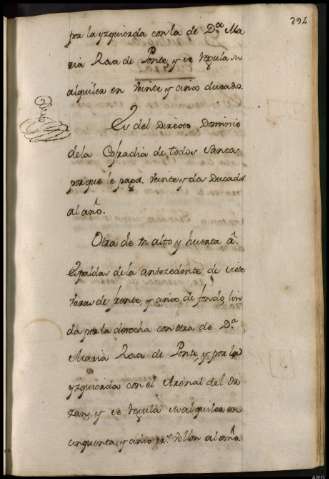 292
por la yzquierda con la de D.ª Ma
ria Rosa de Ponte, y se regula su
alquiler en veinte y cinco ducados
Es del Directo Dominio
de la Cofradia de todos Santos
porque le paga veinte y dos Ducados
al año.
Otra de un alto y huerta á
Espaldas de la antecedente de siete
varas de frente y cinco de fondo lin
da por la derecha con otra de D.ª
Maria Rosa de Ponte, y por la
yzquierda con el Arenal del Or
zan, y se regula su alquiler en
cinquenta y cinco r.s vellon al año